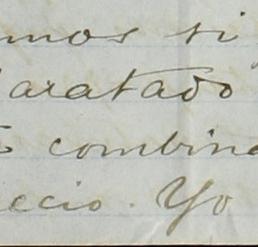 mos si
aratado
combin
ecio. Yo